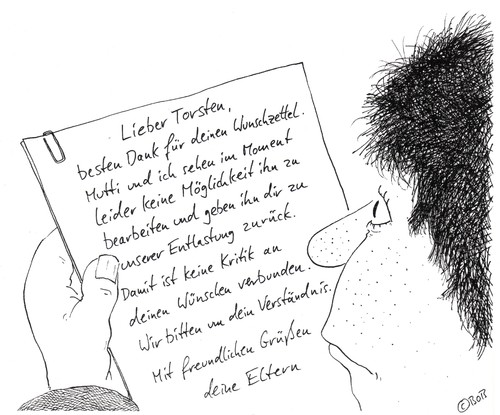 Lieber Torsten,
besten Dank für deinen Wunschzettel.
Mutti und ich sehen im Moment
leider keine Möglichkeit ihn zu
bearbeiten und geben ihn dir zu
unserer Entlastung zurück.
Damit ist keine Kritik an
deinen Wünschen verbunden.
Wir bitten um dein Verständnis.
Mit freundlichen Grüßen
deine Eltern
©BOB